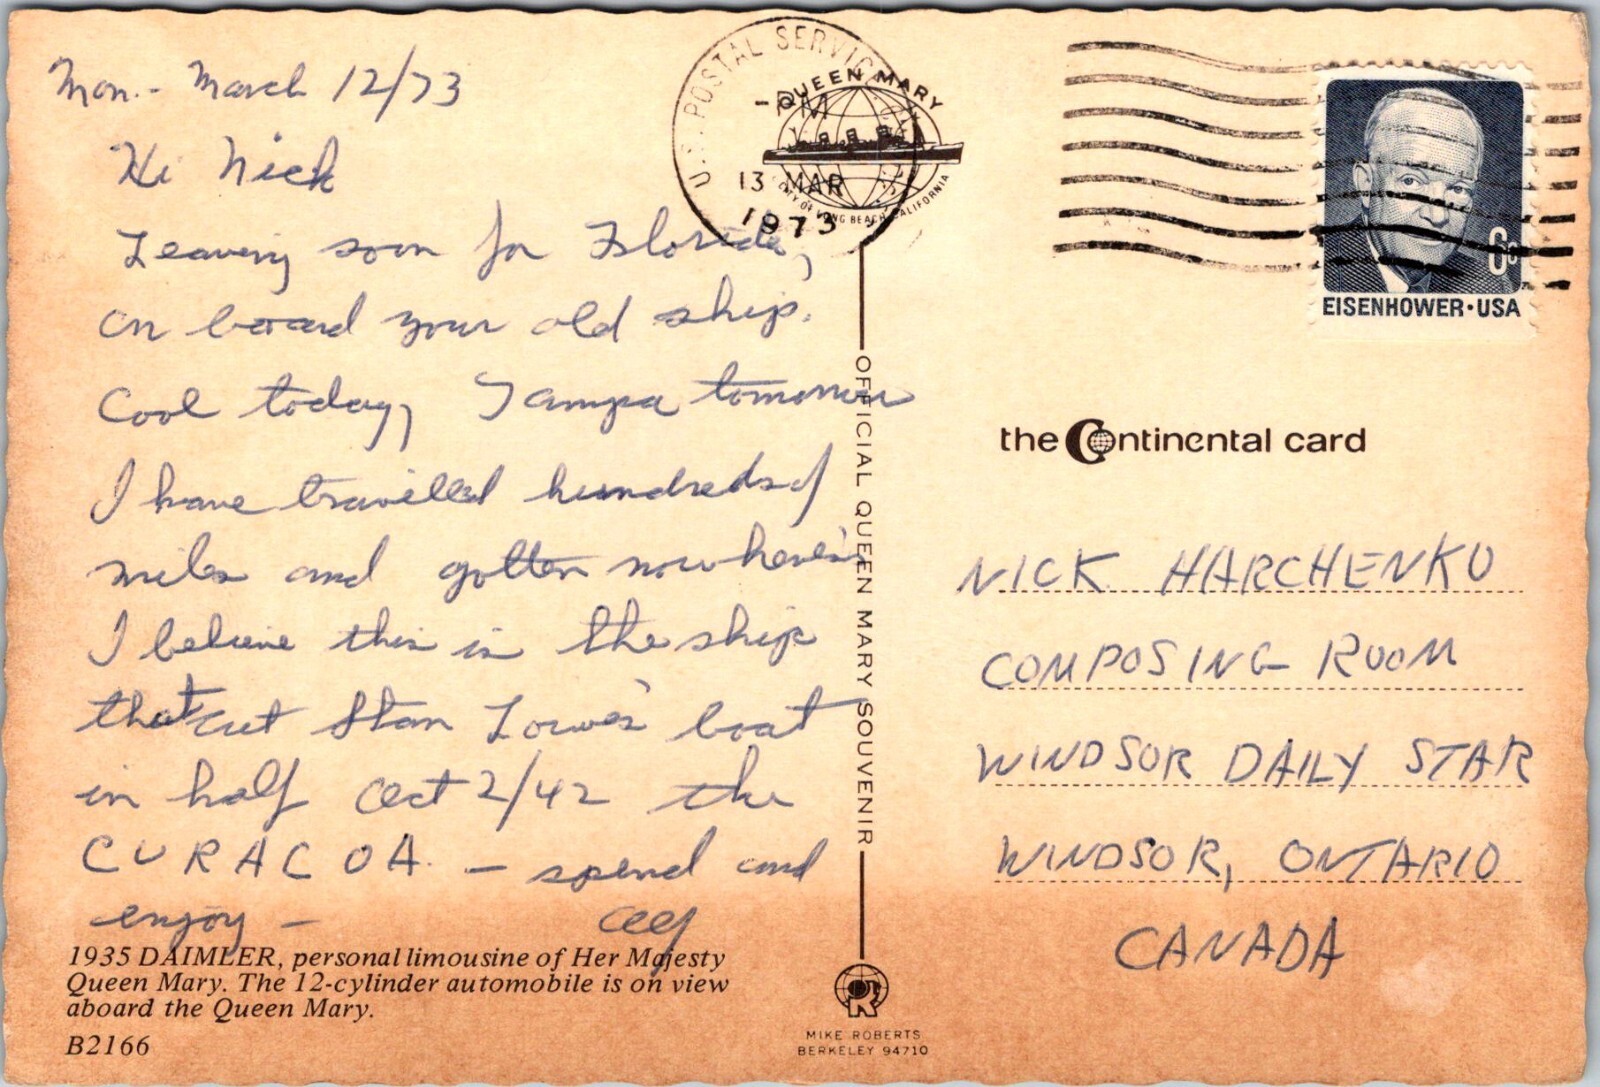 Mon. - March 12/73
Hi Nick
Leaving soon for Florida,
on board your old ship.
Cool today, Tampa tomorrow
I have travelled hundreds of
miles and gotten nowhere.
I believe this is the ship
that cut Stan Lowe's boat
in half Oct 2/42 the
CURACOA. - spend and
enjoy -
1935 DAIMLER, personal limousine of Her Majesty
Queen Mary. The 12-cylinder automobile is on view
aboard the Queen Mary.
B2166
U.S. POSTAL SERVICE
QUEEN MARY
- PM
13 MAR
1973
CITY OF LONG BEACH, CALIFORNIA
OFFICIAL QUEEN MARY SOUVENIR
MIKE ROBERTS
BERKELEY 94710
6c
EISENHOWER·USA
the Continental card
NICK HARCHENKO
COMPOSING ROOM
WINDSOR DAILY STAR
WINDSOR, ONTARIO
CANADA